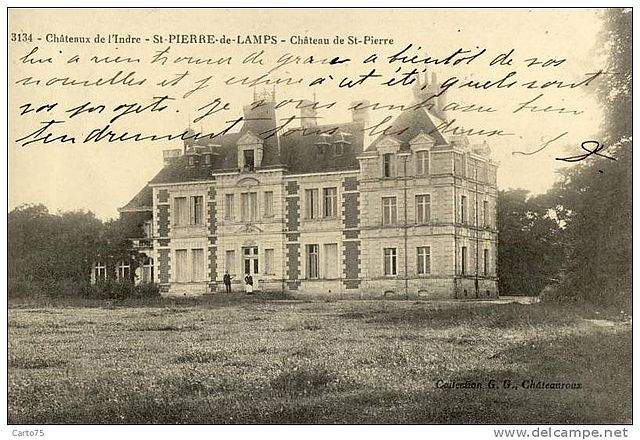 3134 - Châteaux de l'Indre - St-PIERRE-de-LAMPS - Château de St-Pierre
lui a rien trouver de grave a bientôt de vos
nouvelles et j'espère à cet été, quels sont
vos projets. je vous embrasse bien
tendrement tous les deux
Collection G. G., Châteauroux
Carto75
www.delcampe.net